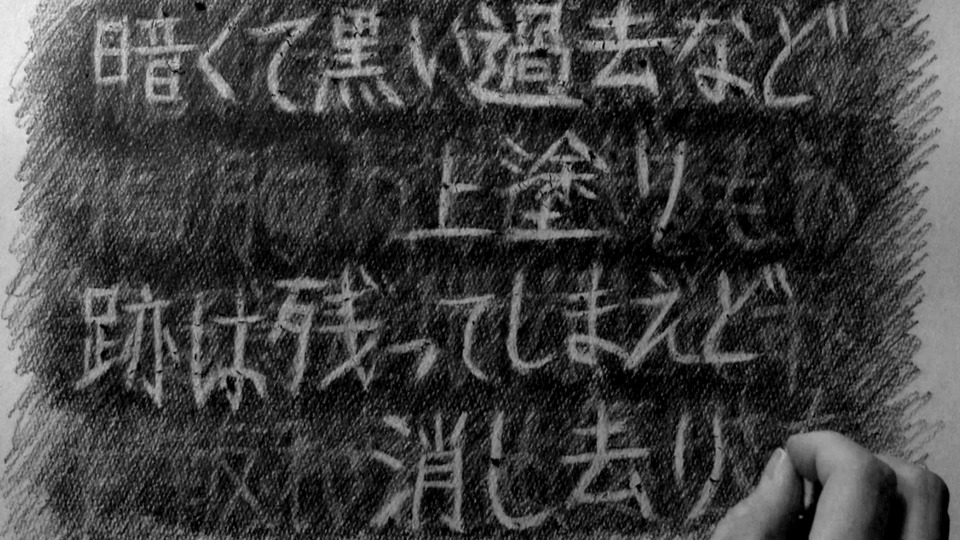 暗くて黒い過去など
上塗り
跡は残ってしまえど
消し去り